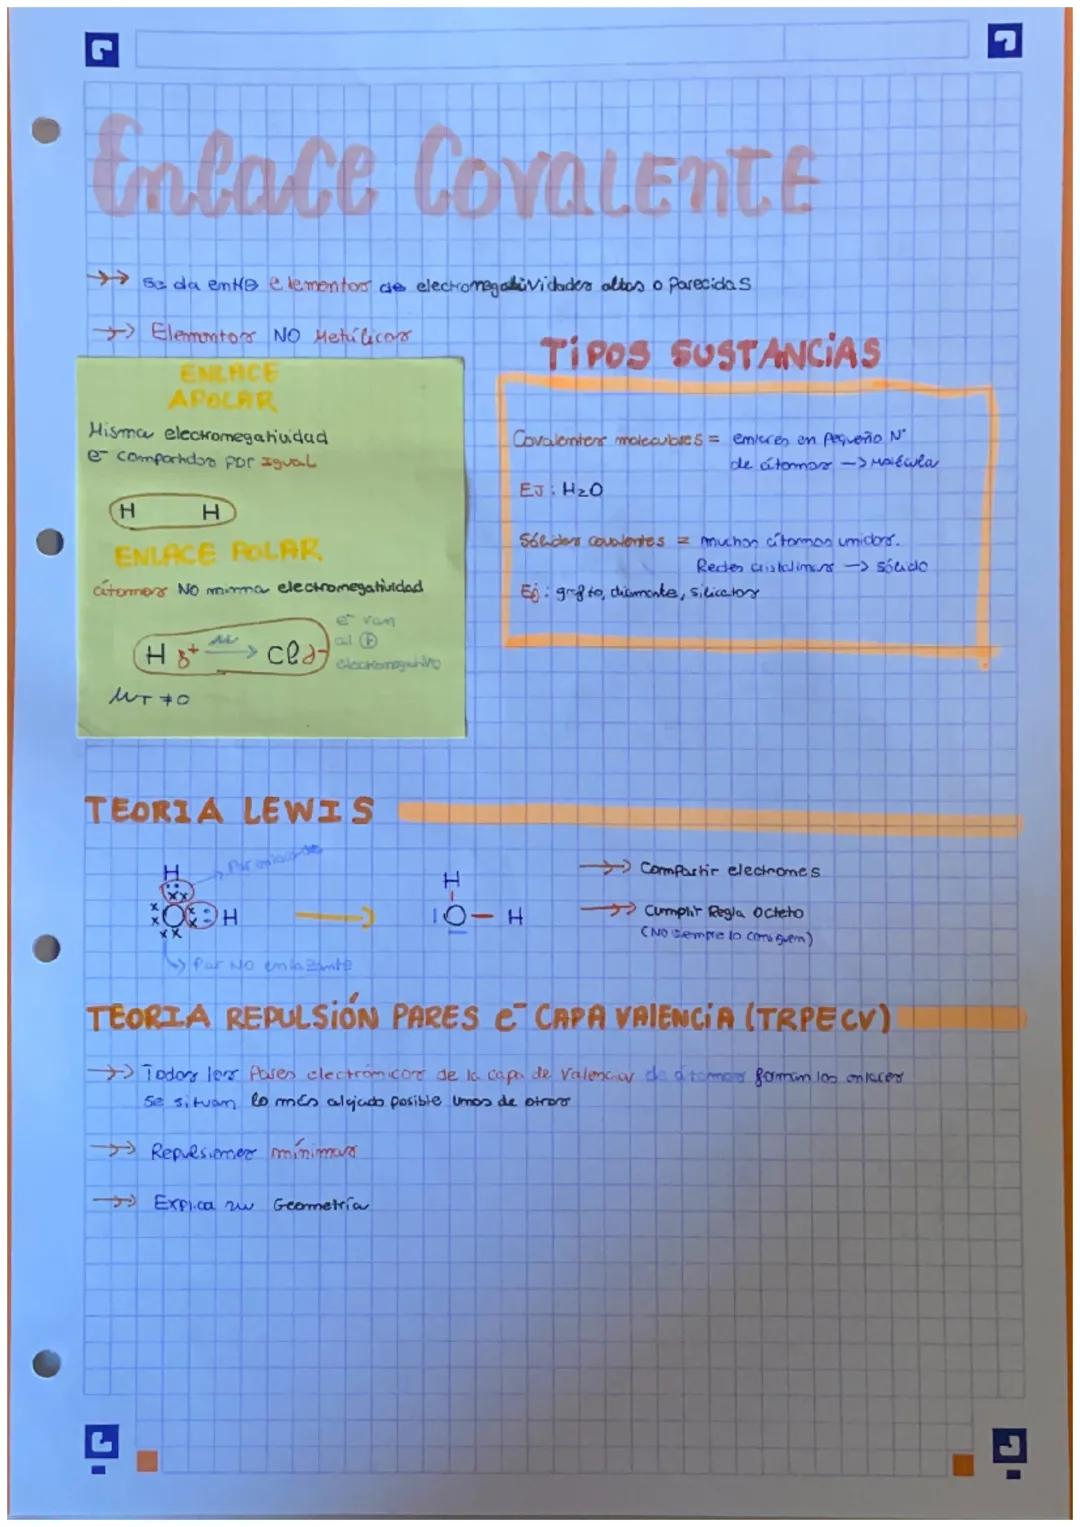 Enlace Covalente
→→ Se da entre elementos de electronegatividades altas o parecidas
→→ Elementos NO Metálicos
ENLACE
APOLAR
Misma electronegatividad
e⁻ compartidos por igual
H H
ENLACE POLAR
átomos NO misma electronegatividad
H δ⁺ μ → Cl δ⁻
e⁻ van
al ⊕
electronegativo
μT ≠ 0
TIPOS SUSTANCIAS
Covalentes moleculares = enlaces en pequeño Nº
de átomos → Molécula
EJ: H₂O
Sólidos covalentes = muchos átomos unidos.
Redes cristalinas → sólido
Ej: grafito, diamante, silicatos
TEORIA LEWIS
H
Par enlazante
O H
Par NO enlazante
H
|O — H
→→ Compartir electrones
→→ Cumplir Regla Octeto
(NO siempre lo consiguen)
TEORIA REPULSIÓN PARES e⁻ CAPA VALENCIA (TRPECV)
→→ Todos los Pares electrónicos de la capa de Valencia de átomos forman los enlaces
se situan lo más alejado posible unos de otros
→→ Repulsiones mínimas
→→ Explica su Geometría